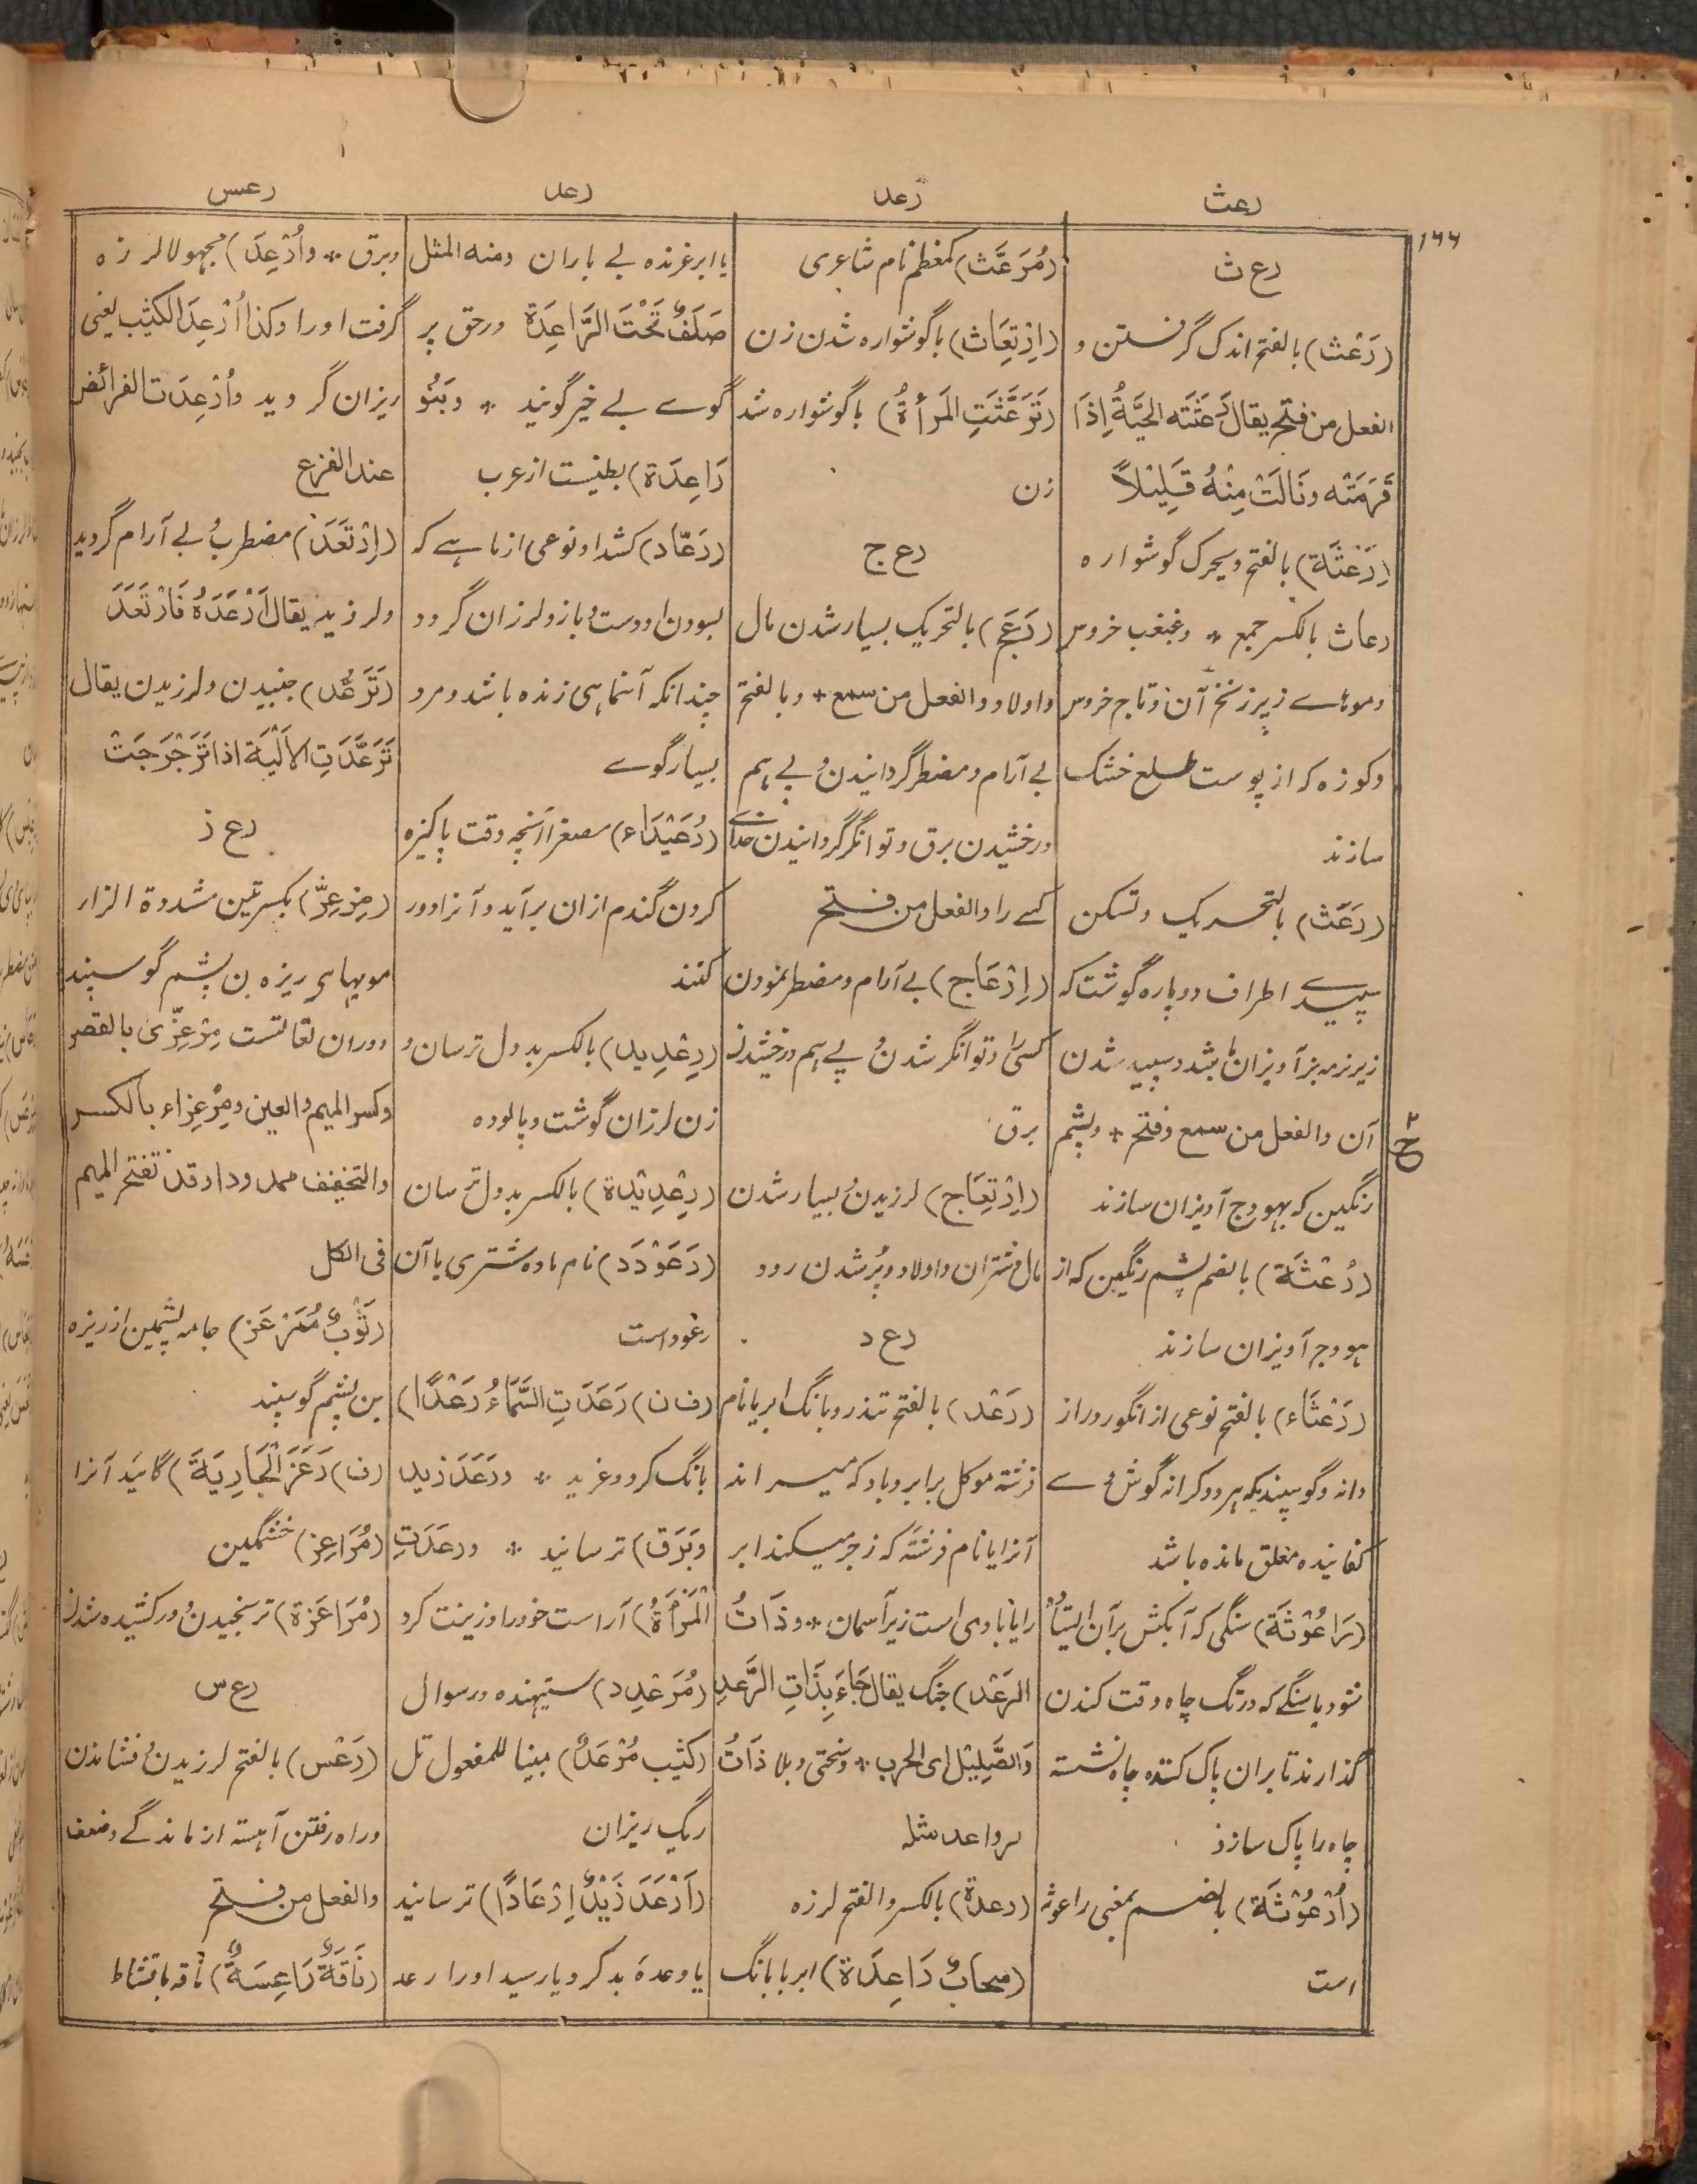 رعث
رعد
رعد
رعس
۱۴۴
رع ث
(رَعْث) بالفتح اندک گرفستن و
الفعل من فتح یقال رَعَثَتْه الحَیَّةُ اِذَا
قَرَمَتْه ونَالَتْ مِنْهُ قَلِیْلاً
(رَعْثَة) بالفتح ویحرک گوشواره
رعاث بالکسر جمع * وغبغب خروس
وموهاے زیر زنخ آن وتاج خروس
وکوزه که از پوست طلع خشک
سازند
(رَعَث) بالتحریک وتسکن
سپیدے اطراف دوپاره گوشت که
زیر نرمه بز آویزان باشد وسپید شدن
آن والفعل من سمع وفتح + وپشم
رنگین که بهودج آویزان سازند
(رُعْثَة) بالضم پشم رنگین که از
هودج آویزان سازند
(رَعْثَاء) بالفتح نوعی از انگور دراز
دانه وگوسپندیکه هر دو کرانه گوش وے
کفانیده معلق مانده باشد
(رَاعُوْثَة) سنگی که آبکش بران ایستاده
شود یا سنگے که در تگ چاه وقت کندن
گذارند تا بران پاک کننده چاه نشسته
چاه را پاک سازد
(اُرْعُوْثَة) بالضم بمعنی راعوثه
است
(مُرَعَّث) کمعظم نام شاعری
(اِرْتِعَاث) باگوشواره شدن زن
(تَرَعَّثَتِ المَرأةُ) باگوشواره شد
زن
رع ج
(رَعَج) بالتحریک بسیار شدن مال
واولاد والفعل من سمع + وبالفتح
بے آرام ومضطر گردانیدن وپے هم
درخشیدن برق وتوانگر گردانیدن خداے
کسے را والفعل من فتح
(اِرْعَاج) بے آرام ومضطر نمودن
کسی را وتوانگر شدن وپے هم درخشیدن
برق
(اِرْتِعَاج) لرزیدن وبسیار شدن
مال وشتران واولاد وپر شدن رود
رع د
(رَعْد) بالفتح تندر وبانگ ابر یا نام
فرشته موکل برابر وباد که میراند
آنرا یا نام فرشته که زجر میکند ابر
را یا بادی است زیر آسمان * وذَاتُ
الرَعْد) جنگ یقال جَاءَ بِذَاتِ الرَّعدِ
وَالصَّلِیْل ای الحرب * وسختی وبلا ذَاتُ
لرواعد مثله
(رعدة) بالکسر والفتح لرزه
(سحابٌ رَاعِدَة) ابر با بانگ
یا ابر غرنده بے باران ومنه المثل
صَلَفٌ تَحْتَ الرَّاعِدَة ورحق پر
گوسے بے خیر گویند * وبَنُو
رَاعِدَة) بطنیست از عرب
(رَعّاد) کشداد نوعی از ماهے که
بسودن او دست وبازو لرزان گردد
چندانکه آنماهی زنده باشد ومرد
بسیار گوے
(رُعَیْدَاء) مصغرا آنچه وقت پاکیزه
کردن گندم ازان برآید وآنرا دور
کنند
(رِعْدِید) بالکسر بددل ترسان و
زن لرزان گوشت وپالوده
(رِعْدِیْدَة) بالکسر بددل ترسان
(رَعَوْدَد) نام ماده شتری یا آن
رغود است
(ف ن) رَعَدَتِ السَّمَاءُ رَعْدًا)
بانگ کرد وغرید * ورَعَدَ زید
وبَرَق) ترسانید * ورعَدَتِ
الْمَرْأَةُ) آراست خود را وزینت کرد
(مُرَعْدِد) ستیهنده در سوال
(کثیب مُرْعَدٌ) مبنیا للمفعول تل
ریگ ریزان
(اَرْعَدَ زَیْدٌ اِرْعَادًا) ترسانید
یا وعدهٔ بد کرد یا رسید او را رعد
وبرق * واُرْعِدَ) مجهولا لرزه
گرفت او را وکذا اُرْعِدَ الکثیب یعنی
ریزان گردید واُرْعِدَت الفرائص
عند الفزع
(اِرْتَعَدَ) مضطرب وبے آرام گردید
ولرزید یقال اَرْعَدَهُ فَارْتَعَدَ
(تَرَعُّد) جنبیدن ولرزیدن یقال
تَرَعَّدَتِ الاَلْیَة اذا تَرَجْرَجَتْ
رع ز
(مِرْعِزّ) بکسرتین مشددة الزاء
موبهای ریزه بن پشم گوسپند
ودران لغاتست مِرْعِزّی بالقصر
وکسر المیم والعین ومِرْعِزاء بالکسر
والتخفیف ممدودا وقد تفتح المیم
فی الکل
(ثَوْبٌ مُمَرْعَز) جامه پشمین از ریزه
بن پشم گوسپند
(ف) رَعَزَ الْجَارِیَةَ) گائید آنرا
(مُرَاعِز) خشمگین
(مُرَاعَزة) ترنجیدن ودرکشیده شدن
رع س
(رَعْس) بالفتح لرزیدن وفشاندن
وراه رفتن آهسته از ماندگے وضعف
والفعل من فتح
(نَاقَةٌ رَاعِسَةٌ) ناقه بانشاط